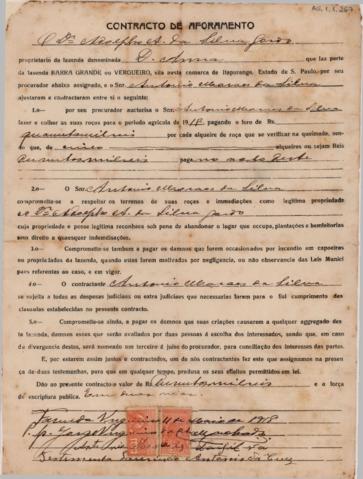 AG. 1. X. 267
CONTRACTO DE AFORAMENTO
O Dr. Adolpho A. da Silva Gordo
proprietario da fazenda denominada D. Anna que faz parte
da fazenda BARRA GRANDE ou VERGUEIRO, sita nesta comarca de Itaporanga, Estado de S. Paulo, por seu
procurador abaixo assignado, e o Snr. Antonio Moraes da Silva
ajustaram e contractaram entre si o seguinte:
1.o— por seu procurador auctorisa o Snr. Antonio Moraes da Silva
fazer e colher as suas roças para o periodo agricola de 1918 pagando o foro de Rs.
por cada alqueire de roça que se verificar na queimada, sen-
do que, de cinco alqueires ou sejam Reis
pago nesta
2.o— O Snr. Antonio Moraes da Silva
compromette-se a respeitar os terrenos de suas roças e immediações como legitima propriedade
do Dr. Adolpho A. da Silva Gordo
cuja propriedade e posse legitima reconhece sob pena de abandonar o lugar que occupa, plantações e bemfeitorias
sem direito a quaesquer indemnisações.
3.o— Compromette-se tambem a pagar os damnos que forem occasionados por incendio em capoeiras
ou propriedades da fazenda, quando estas forem motivados por negligencia, ou não observancia das Leis Munici
paes referentes ao caso, e em vigor.
4.o— O contractante Antonio Moraes da Silva
se sujeita a todas as despezas judiciaes ou extra judiciaes que necessarias forem para o fiel cumprimento das
clausulas estabelecidas no presente contracto.
5.o— Compromettendo-se ainda, a pagar os damnos que suas criações causarem a qualquer aggregado des
ta fazenda, damnos esses que serão avaliados por duas pessoas á escolha dos interessados, sendo que, em caso
de divergencia destes, será nomeado um terceiro á juizo do procurador, para conciliação dos interesses das partes.
E, por estarem assim justos e contractados, um de nós contractantes fez este que assignamos na presen
ça de duas testemunhas, para que em qualquer tempo, produza os seus effeitos permittidos em lei.
Dão ao presente contracto o valor de Rs. e a força
de escriptura publica.
Fazenda Vergueiro 11 de Maio de 1918
Antonio da Cruz